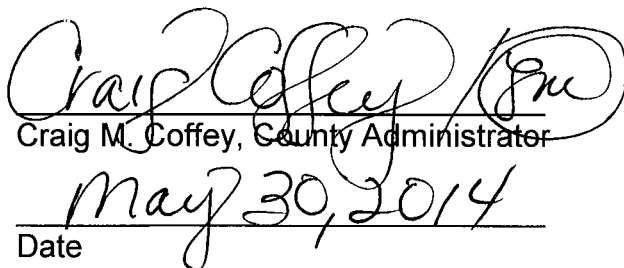 Craig Coffey /
Craig M. Coffey, County Administrator
May 30, 2014
Date